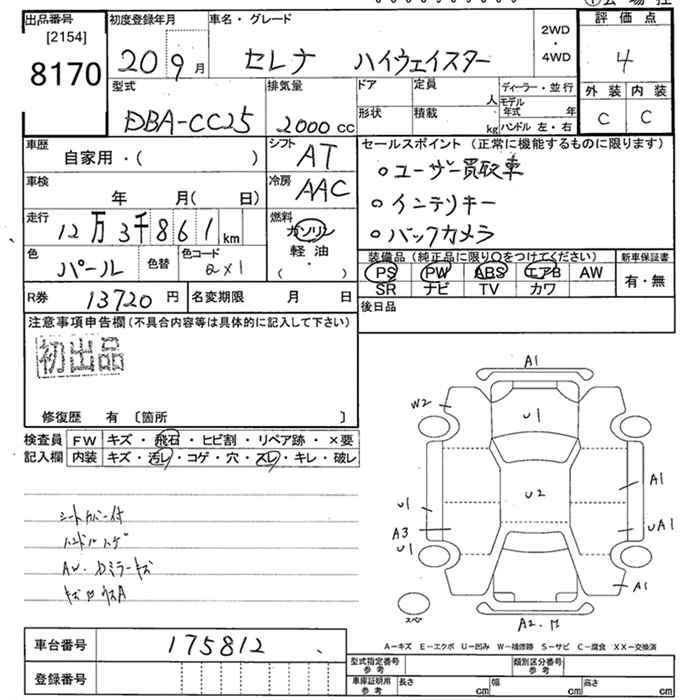 出品番号 初度登録年月 車名・グレード 2WD・4WD 評価点
[2154]
8170 20 9月 セレナ ハイウェイスター 4
型式 排気量 ドア 定員 人 ディーラー・並行 外装 内装
DBA-CC25 2000cc 形状 積載 kg モデル年式 年 C C
ハンドル 左・右
車歴 シフト セールスポイント(正常に機能するものに限ります)
自家用・( ) AT ○ユーザー買取車
車検 冷房
年 月( 日) AAC ○インテリキー
走行 燃料
12万3千861km ガソリン ○バックカメラ
軽油
・( )
色 色替 色コード 装備品(純正品に限り○をつけてください) 新車保証書
パール QX1 PS PW ABS エアB AW 有・無
SR ナビ TV カワ
R券 13720円 名変期限 月 日 後日品
注意事項申告欄(不具合内容等は具体的に記入して下さい)
初出品
修復歴 有 〔箇所 〕
検査員 FW キズ・飛石・ヒビ割・リペア跡・×要
記入欄 内装 キズ・汚レ・コゲ・穴・スレ・キレ・破レ
A1
W2
U1
U2
A1
U1
UA1
A3
U1
A1
シートカバー付
ハンドルハゲ
AW・Dミラーキズ
スペア
車台番号 175812
A-キズ E-エクボ U-凹み W-補修跡 S-サビ C-腐食 XX-交換済
登録番号
型式指定番号 参考 類別区分番号 参考
車庫証明用 参考 長さ cm 幅 cm 高さ cm